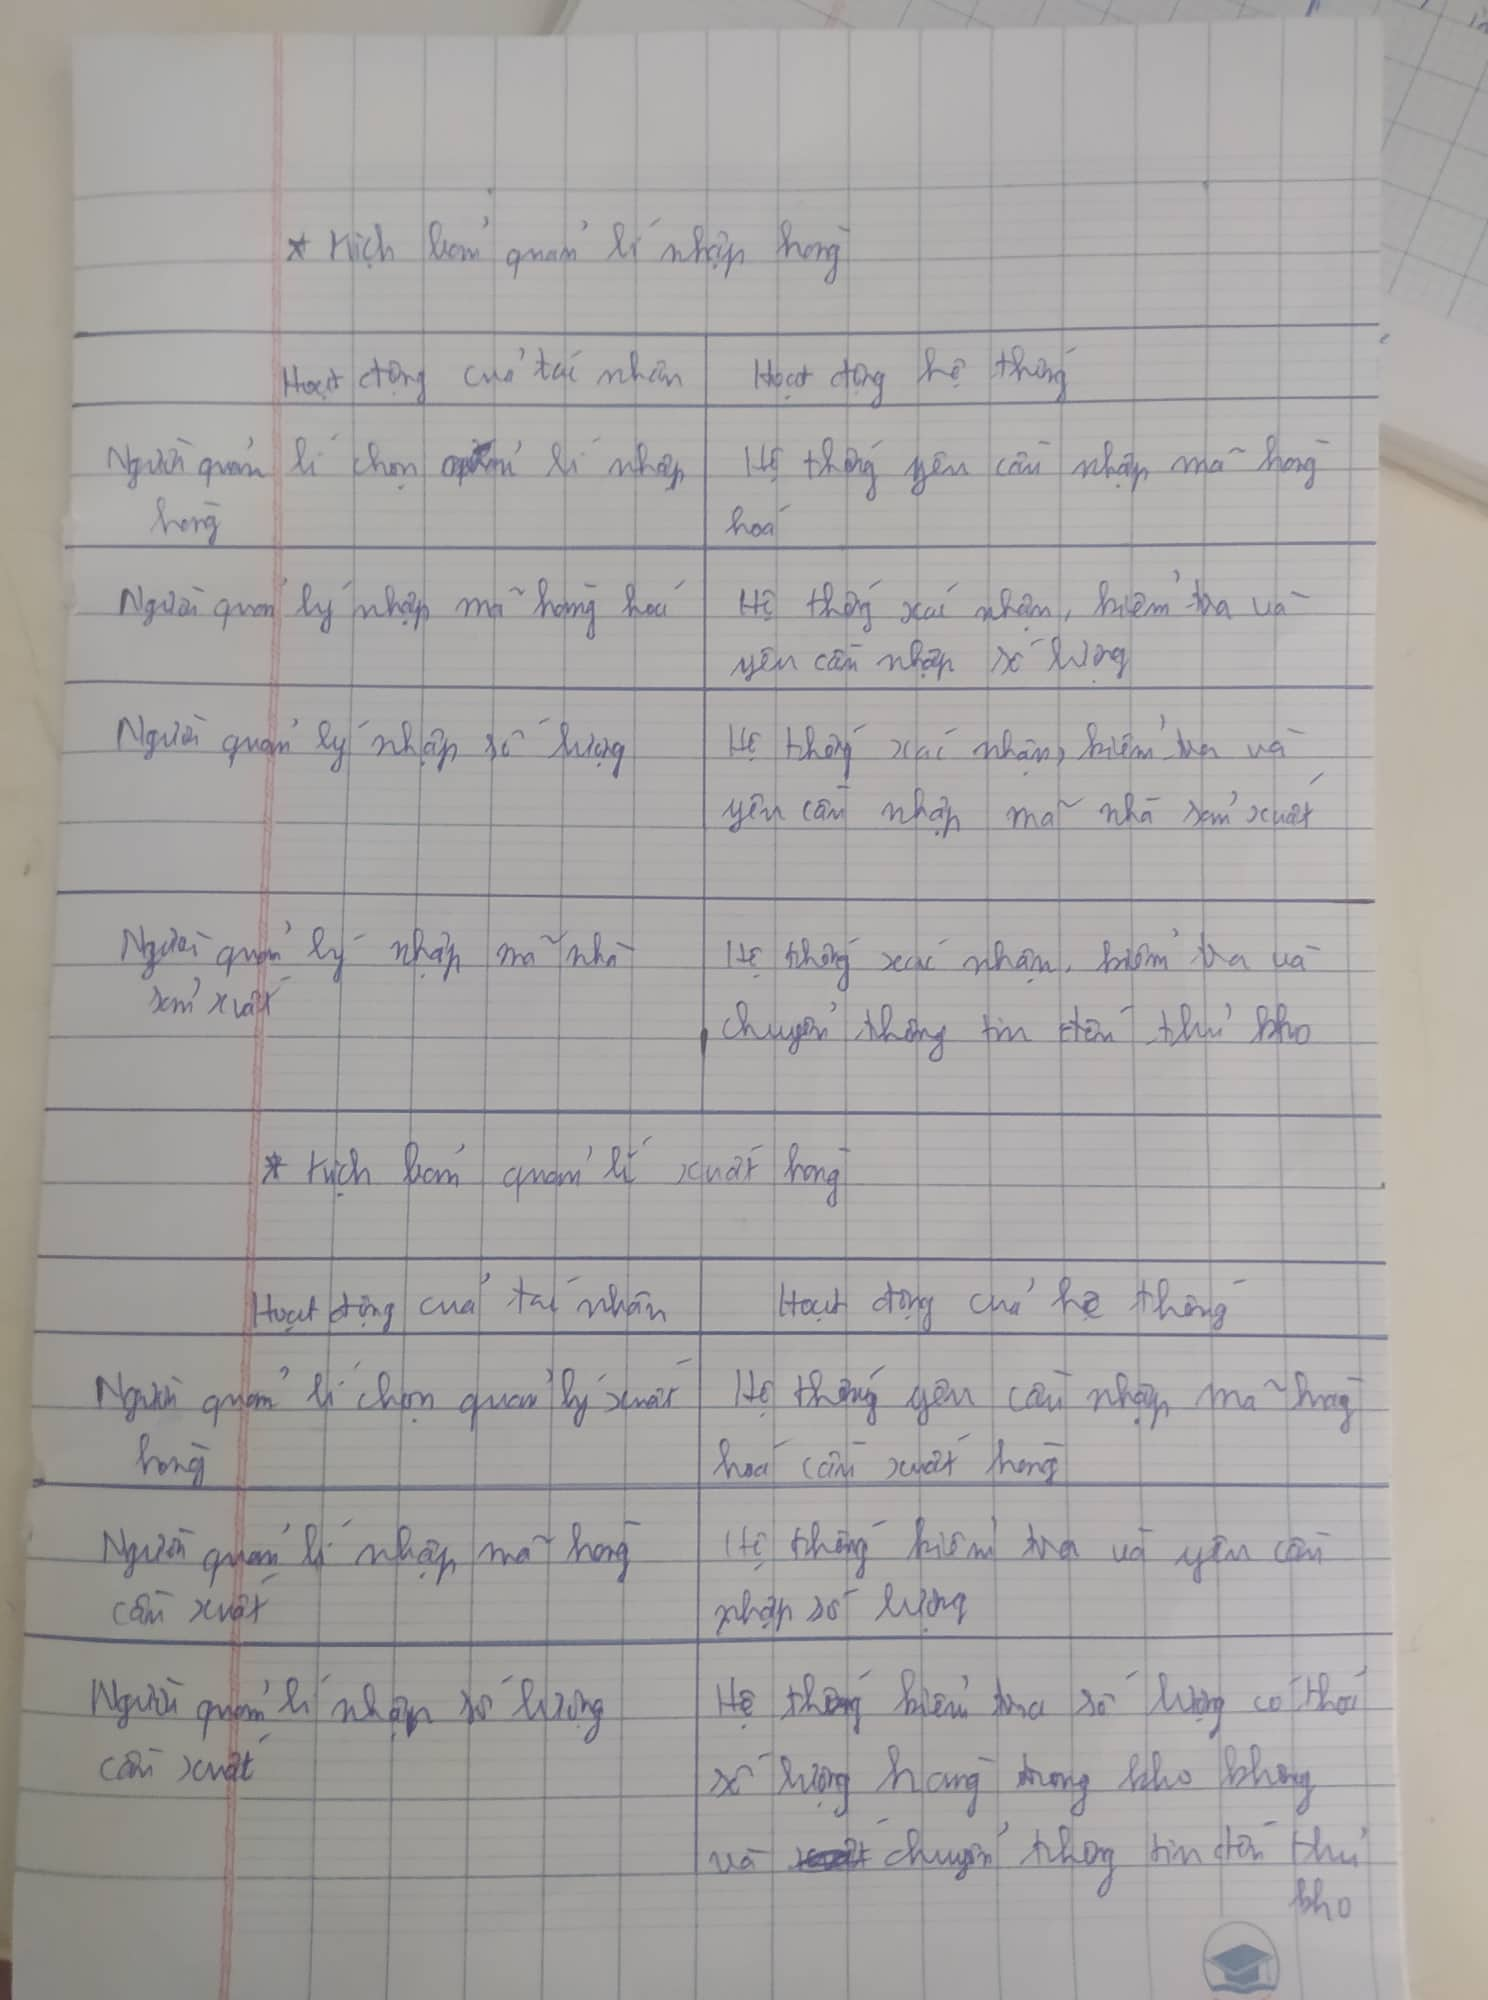 * Kịch bản quản lí nhập hàng
Hoạt động của tác nhân | Hoạt động hệ thống
Người quản lí chọn quản lí nhập | Hệ thống yêu cầu nhập mã hàng
hàng | hoá
Người quản lý nhập mã hàng hoá | Hệ thống xác nhận, kiểm tra và
yêu cầu nhập số lượng
Người quản lý nhập số lượng | Hệ thống xác nhận, kiểm tra và
yêu cầu nhập mã nhà sản xuất
Người quản lý nhập mã nhà | Hệ thống xác nhận, kiểm tra và
sản xuất | chuyển thông tin đến thủ kho
* Kịch bản quản lí xuất hàng
Hoạt động của tác nhân | Hoạt động của hệ thống
Người quản lí chọn quản lý xuất | Hệ thống yêu cầu nhập mã hàng
hàng | hoá cần xuất hàng
Người quản lí nhập mã hàng | Hệ thống kiểm tra và yêu cầu
cần xuất | nhập số lượng
Người quản lí nhập số lượng | Hệ thống kiểm tra số lượng có thoả
cần xuất | số lượng hàng trong kho không
và chuyển thông tin đến thủ
kho